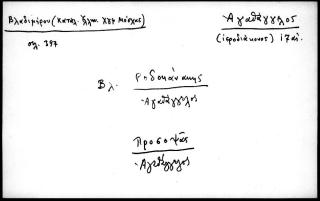 Βλαδιμήρου (Κατάλ. Ἑλλην. Χγφ Μόσχας)
σελ. 397
Ἀγαθάγγελος
(ἱεροδιάκονος) 17 αἰ.
Βλ. Ροδοκανάκης
Ἀγαθάγγελος
Προσοψᾶς
Ἀγαθάγγελος